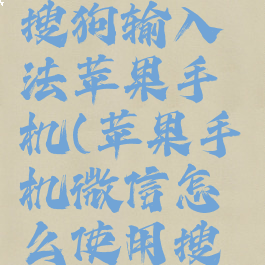 搜狗输入
法苹果手
机(苹果手
机微信怎
么使用搜